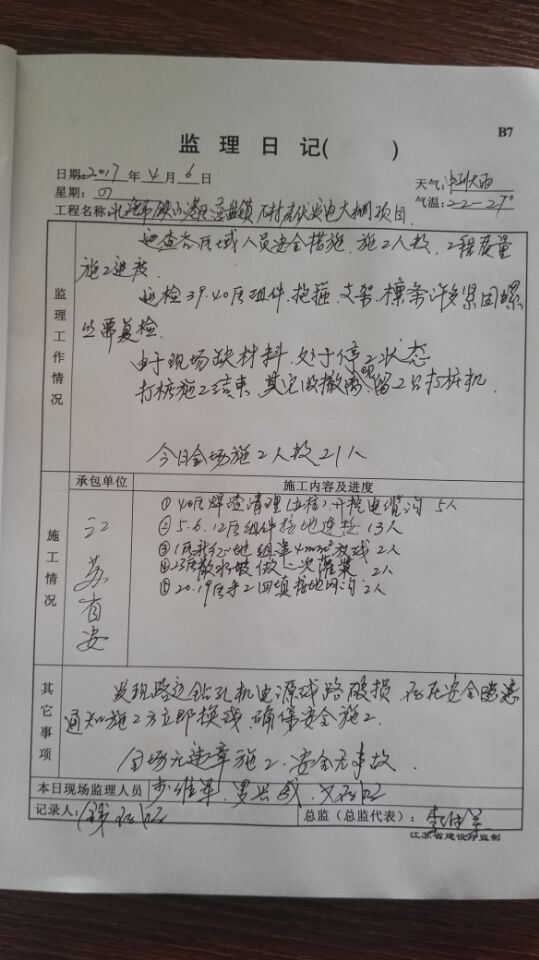 B7
监理日记( )
日期:2017年4月6日
星期:四
天气:中到大雨
气温:22-27°
工程名称:北海市铁山港区营盘镇 村光伏发电大棚项目
监理工作情况
巡查各区域人员安全措施、施工人数、工程质量
施工进度。
巡检39.40区组件、抱箍、支架、檩条许多紧固螺
丝需复检。
由于现场缺材料、处于停工状态
打桩施工结束、其它已撤离现留2台打桩机。
今日全场施工人数21人
施工情况
承包单位
施工内容及进度
江苏省安
①40区焊渣清理(立柱)开挖电缆沟 5人
②5.6.12区组件接地连接 13人
③1区 组串4mm²放线 2人
④23区散水坡做二次灌浆 2人
⑤20.19区手工回填接地网沟 2人
其它事项
发现路边钻孔机电源线路破损、存在安全隐患
通知施工方立即换线、确保安全施工。
全场无违章施工、安全无事故.
本日现场监理人员 李维军、罗兴
记录人:
总监(总监代表):
江苏省建设厅监制